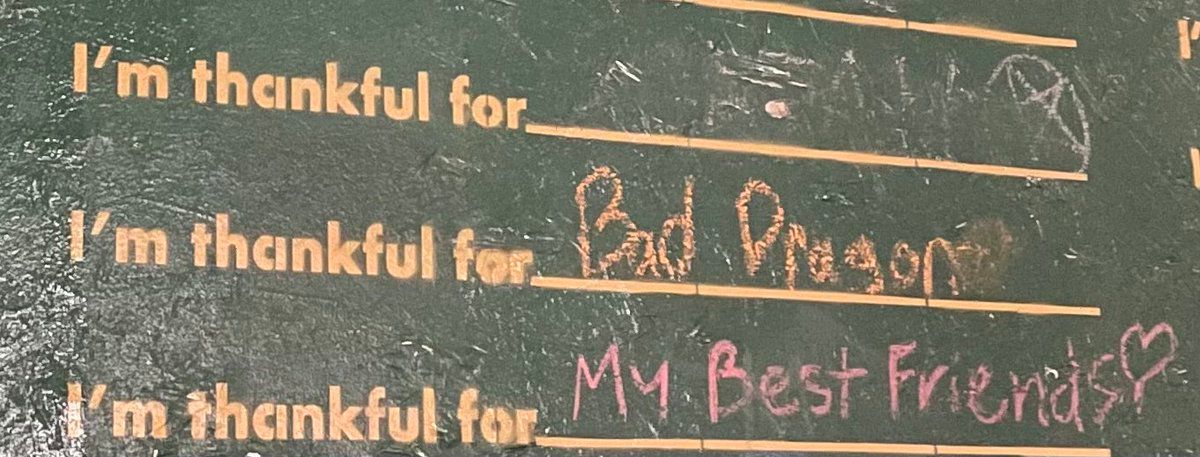 I'm thankful for
I'm thankful for Bad Dragon
I'm thankful for My Best Friends♡